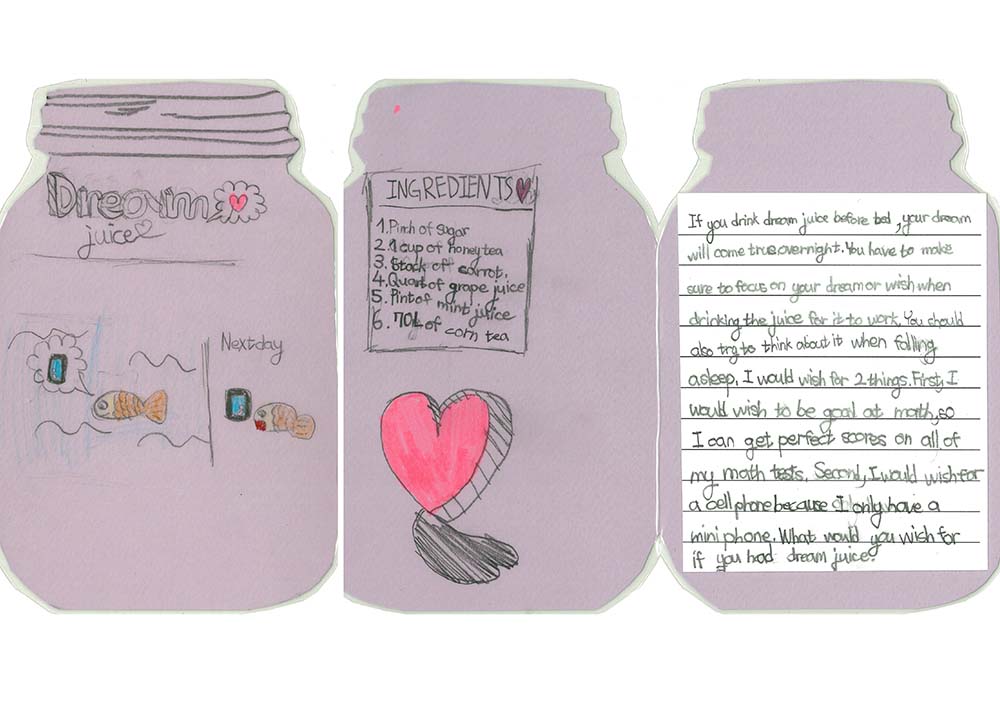 Dream
juice
Next day
INGREDIENTS
1. Pinch of sugar
2. 1 cup of honey tea
3. Stack off carrot.
4. Quart of grape juice
5. Pint of mint juice
6. 70L of corn tea
If you drink dream juice before bed, your dream
will come true overnight. You have to make
sure to focus on your dream or wish when
drinking the juice for it to work. You should
also try to think about it when falling
asleep. I would wish for 2 things. First, I
would wish to be goal at math, so
I can get perfect scores on all of
my math tests. Second, I would wish for
a cell phone because I only have a
mini phone. What would you wish for
if you had dream juice?